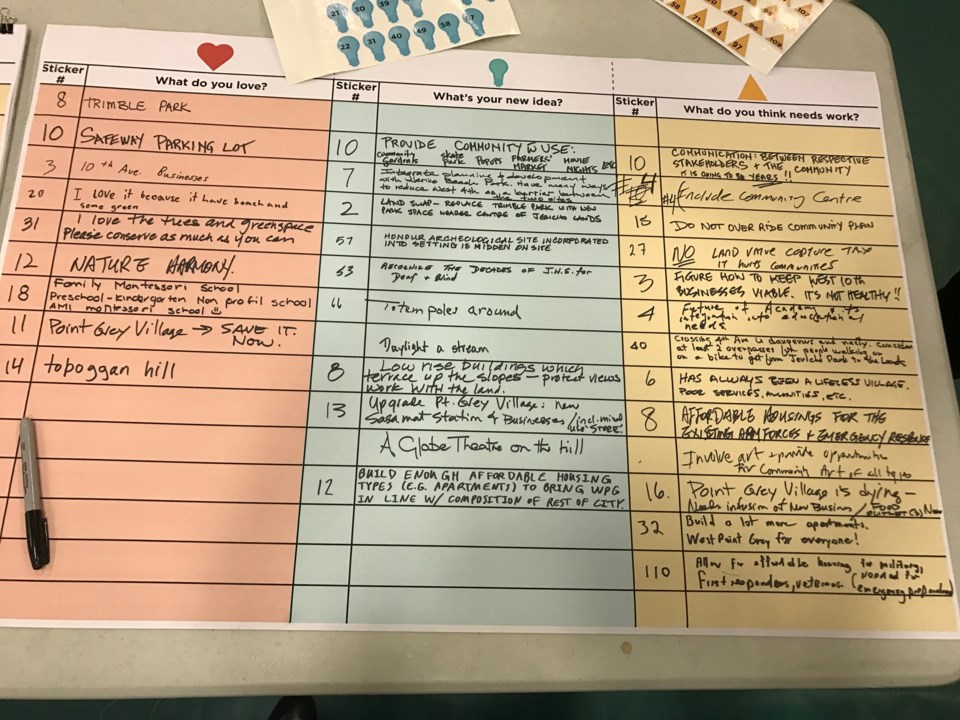 21 30 39
22 31 40 49 58 67
58 71
84 97
107
109
Sticker #
What do you love?
8 TRIMBLE PARK
10 SAFEWAY PARKING LOT
3 10th Ave. Businesses
20 I love it because it have beach and
some green
31 I love the trees and greenspace
Please conserve as much as you can
12 NATURE HARMONY.
18 Family Montessori School
Preschool-Kindergarten Non profit school
AMI montessori school
11 Point Grey Village → SAVE IT.
NOW.
14 toboggan hill
Sticker #
What's your new idea?
10 PROVIDE COMMUNITY USE:
community skate Popups FARMERS' MOVIE ETC
Gardens Park MARKET NIGHTS
7 Integrate planning & development
with Jericho Beach Park. Have many ways
to reduce West 4th as a barrier between
the two sites
2 LAND SWAP - REPLACE TRIMBLE PARK WITH NEW
PARK SPACE NEARER CENTRE OF JERICHO LANDS
57 HONOUR ARCHEOLOGICAL SITE INCORPORATED
INTO SETTING IE MIDDEN ON SITE
53 RECOGNIZE THE DECADES OF J.H.S. for
Deaf + Blind
66 Totem poles around
Daylight a stream
8 Low rise buildings which
terrace up the slopes - protect views
work with the land.
13 Upgrade Pt. Grey Village: new
Sasamat Station & Businesses /incl. mixed
use STORE.
A Globe Theatre on the hill
12 BUILD ENOUGH AFFORDABLE HOUSING
TYPES (E.G. APARTMENTS) TO BRING WPG
IN LINE W/ COMPOSITION OF REST OF CITY.
Sticker #
What do you think needs work?
10 COMMUNICATION: BETWEEN RESPECTIVE
STAKEHOLDERS + THE COMMUNITY
IT IS GOING TO BE YEARS!!
#4 Include Community Centre
15 DO NOT OVER RIDE COMMUNITY PLAN
27 NO LAND VALUE CAPTURE TAX
IT HURTS COMMUNITIES
3 FIGURE HOW TO KEEP WEST 10th
BUSINESSES VIABLE. IT'S NOT HEALTHY!!
4 Future of Academy
integration into educational
needs
40 Crossing 4th Ave is dangerous and nasty. Consider
at least 2 overpasses let people walking or
on a bike to get from Jericho Park to the Lands
6 HAS ALWAYS BEEN A LIFELESS VILLAGE.
POOR SERVICES, AMENITIES, ETC.
8 AFFORDABLE HOUSINGS FOR THE
EXISTING ARM FORCES + EMERGENCY RESPONSE
Involve art + provide opportunities
for Community Art of all types
16. Point Grey Village is dying -
Needs infusion of New Business / FOOD
OUTLET(S) Now
32 Build a lot more apartments.
West Point Grey for everyone!
110 Allow for affordable housing for military,
first responders, veterans (needed for
emergency preparedness)